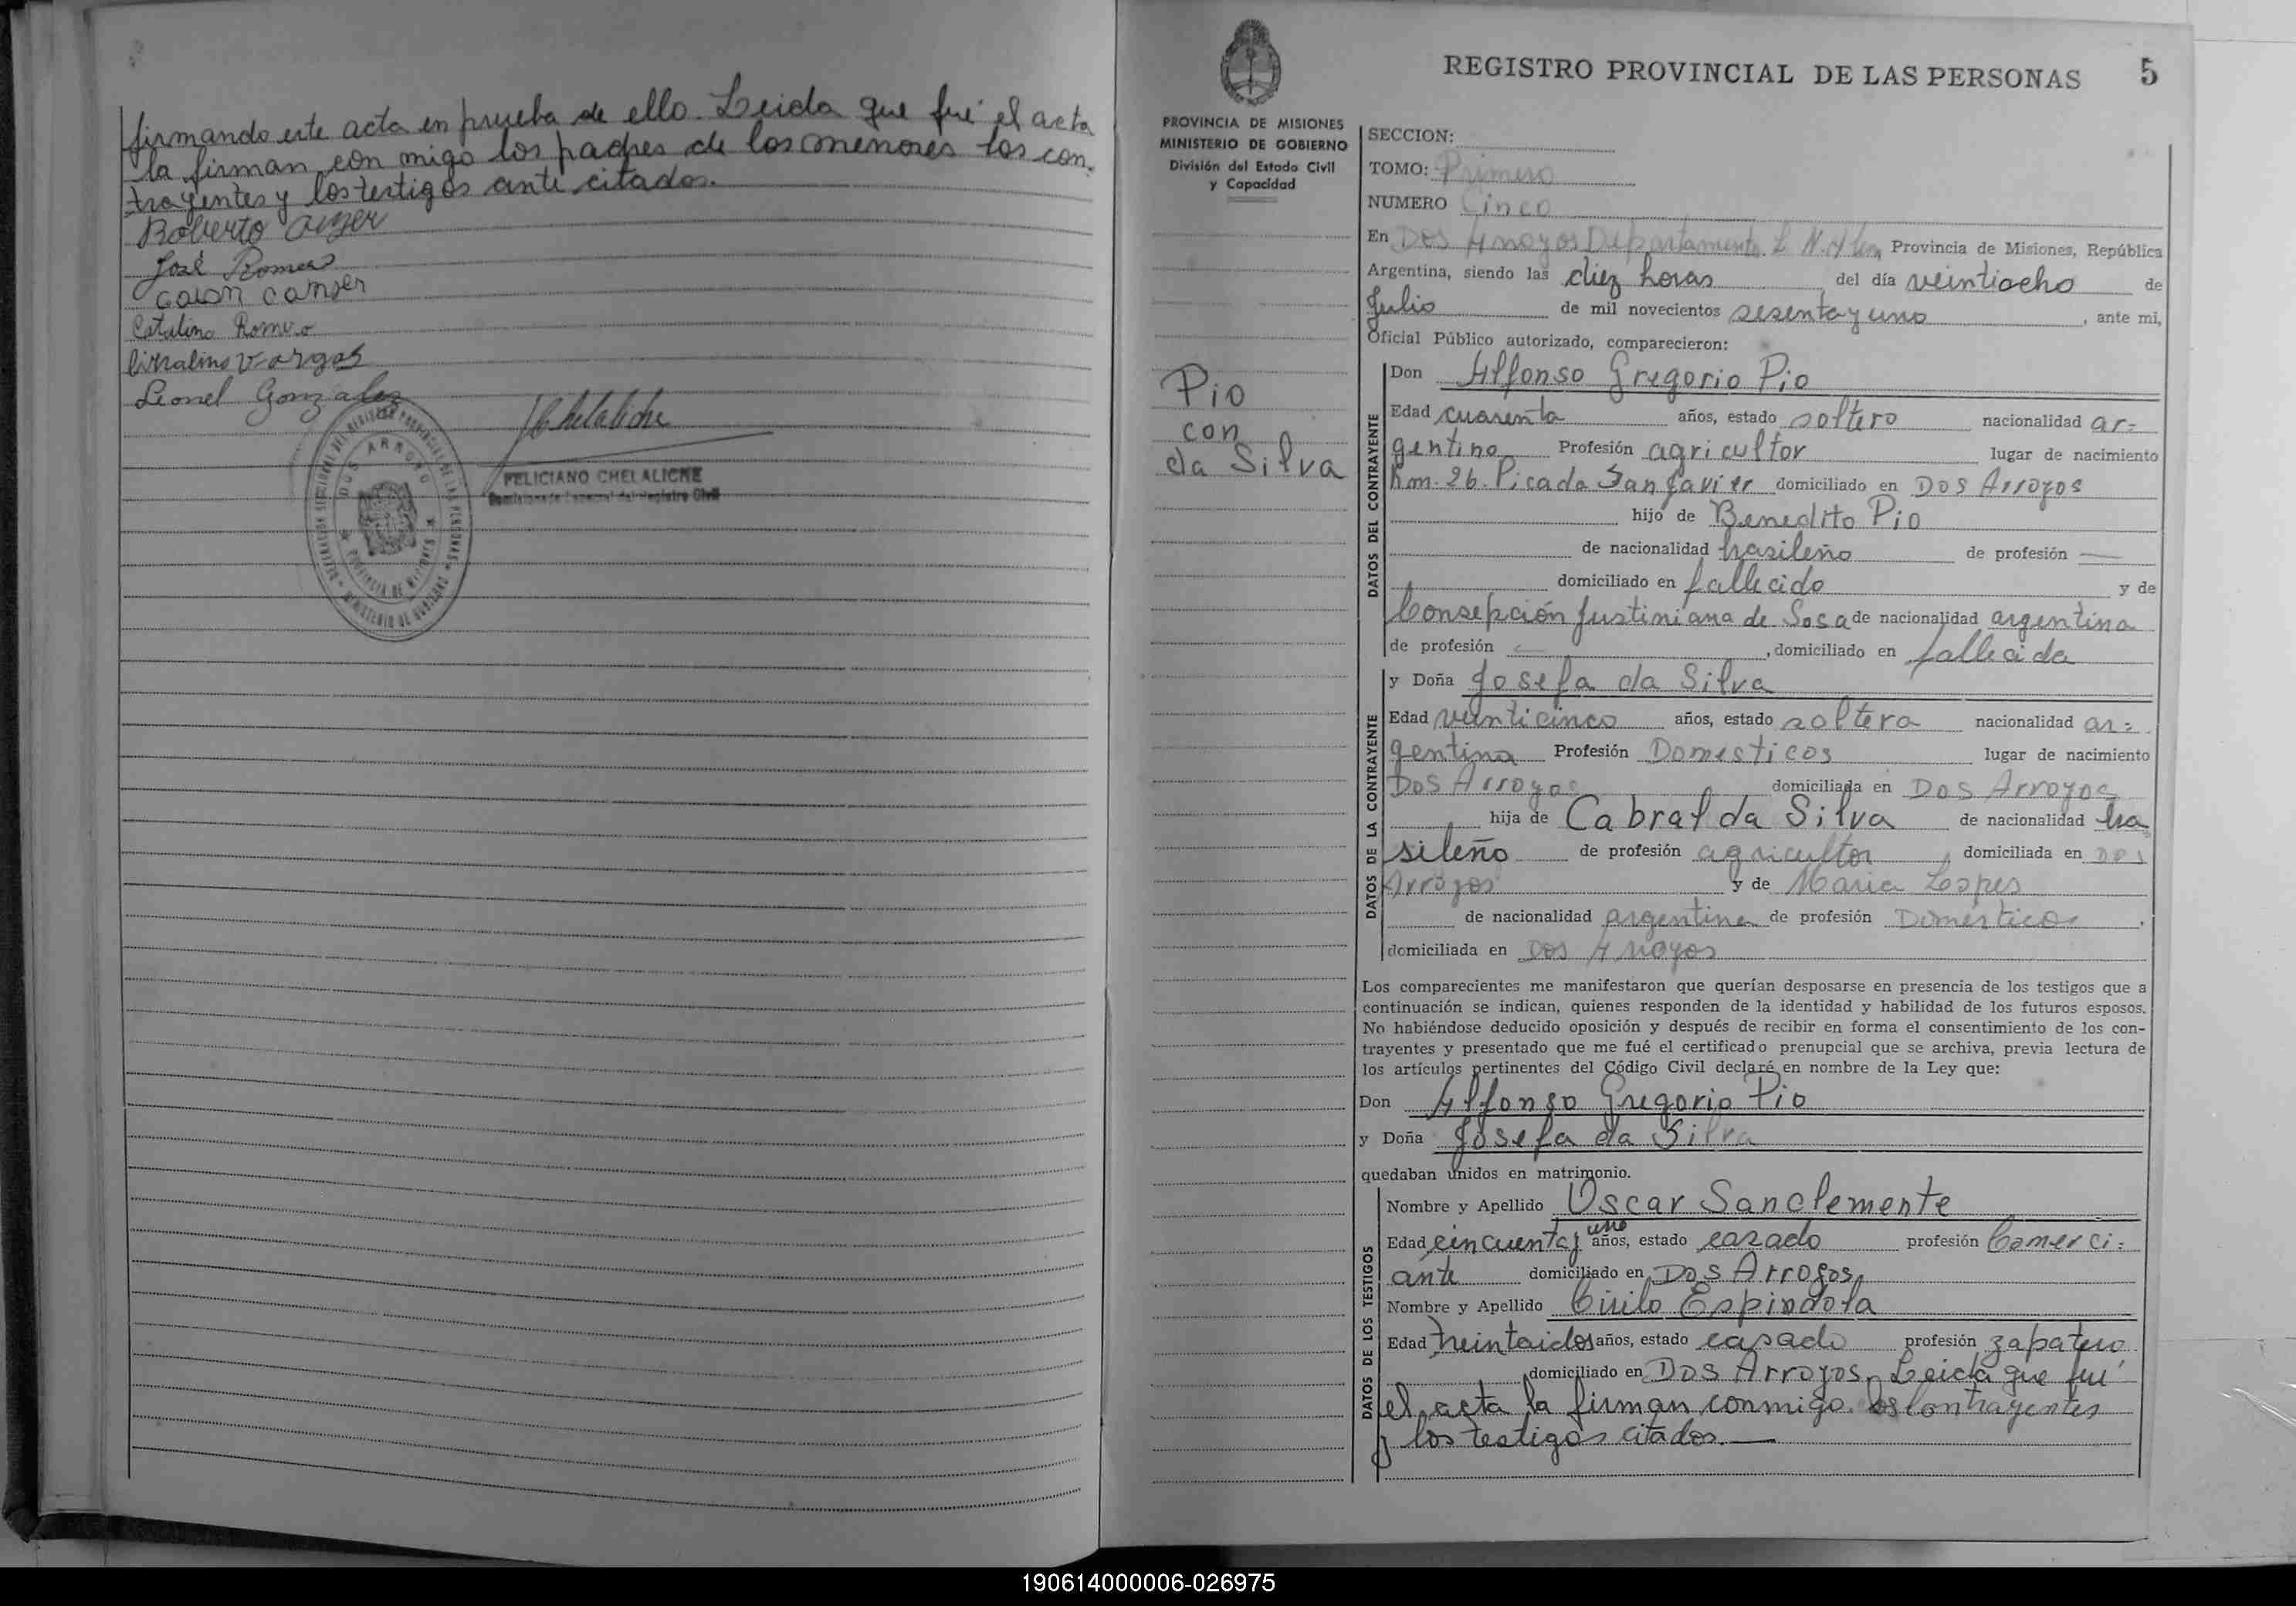 firmando este acta en prueba de ello. Leida que fué el acta
la firman con migo los padres de los menores los con-
trayentes y los testigos ante citados.
Roberto
José Romero
Catalina Romero
Vargas
Leonel Gonzalez
DOS ARROYOS
PROVINCIA DE MISIONES
FELICIANO CHELALICHE
REGISTRO PROVINCIAL DE LAS PERSONAS 5
PROVINCIA DE MISIONES
MINISTERIO DE GOBIERNO
División del Estado Civil
y Capacidad
Pio
con
da Silva
SECCION:
TOMO: Primero
NUMERO Cinco
En Dos Arroyos Departamento L. N. Alem, Provincia de Misiones, República
Argentina, siendo las diez horas del día veintiocho de
Julio de mil novecientos sesenta y uno, ante mi,
Oficial Público autorizado, comparecieron:
DATOS DEL CONTRAYENTE
Don Alfonso Gregorio Pio
Edad cuarenta años, estado soltero nacionalidad ar-
gentino Profesión agricultor lugar de nacimiento
km. 26. Picada San Javier domiciliado en Dos Arroyos
hijo de Benedito Pio
de nacionalidad brasileño de profesión —
domiciliado en fallecido y de
Consepción Justiniana de Sosa de nacionalidad argentina
de profesión —, domiciliado en fallecida
DATOS DE LA CONTRAYENTE
y Doña Josefa da Silva
Edad veinticinco años, estado soltera nacionalidad ar-
gentina Profesión Domesticos lugar de nacimiento
Dos Arroyos domiciliada en Dos Arroyos
hija de Cabral da Silva de nacionalidad bra
sileño de profesión agricultor, domiciliada en Dos
Arroyos y de Maria Lopes
de nacionalidad argentina de profesión Domesticos,
domiciliada en Dos Arroyos
Los comparecientes me manifestaron que querían desposarse en presencia de los testigos que a
continuación se indican, quienes responden de la identidad y habilidad de los futuros esposos.
No habiéndose deducido oposición y después de recibir en forma el consentimiento de los con-
trayentes y presentado que me fué el certificado prenupcial que se archiva, previa lectura de
los artículos pertinentes del Código Civil declaré en nombre de la Ley que:
Don Alfonso Gregorio Pio
y Doña Josefa da Silva
quedaban unidos en matrimonio.
DATOS DE LOS TESTIGOS
Nombre y Apellido Oscar Sanclemente
Edad cincuentay uno años, estado casado profesión Comerci-
ante domiciliado en Dos Arroyos,
Nombre y Apellido Cirilo Espindola
Edad treintaidos años, estado casado profesión zapatero
domiciliado en Dos Arroyos, Leida que fué
el acta la firman conmigo los contrayentes
y los testigos citados.—
190614000006-026975